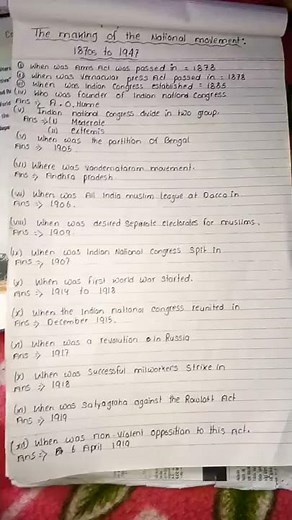 The making of the National movement:
1870s to 1947
(i) When was Arms Act was passed in = 1878
(ii) When was Vernacular press Act passed in = 1878
(iii) When was Indian Congress established = 1885
(iv) Who was founder of Indian national Congress
Ans ⇒ A.O. Hume
(v) Indian national congress divide in two group.
Ans ⇒ (i) Moderate
(ii) Extremis
(v) When was the partition of Bengal
Ans ⇒ 1905.
(vi) Where was vandemataram movement.
Ans ⇒ Andhra pradesh
(vii) When was All India muslim league at Dacca in
Ans ⇒ 1906.
(viii) When was desired Separate electorates for muslims.
Ans ⇒ 1909
(ix) When was Indian National Congress Split in
Ans ⇒ 1907
(x) When was first world war started.
Ans ⇒ 1914 to 1918
(x) When the Indian national congress reunited in
Ans ⇒ December 1915.
(xi) When was a revolution in Russia
Ans ⇒ 1917
(x) When was Successful millworkers Strike in
Ans ⇒ 1918
(xi) When was Satyagraha against the Rowlatt Act
Ans ⇒ 1919
(xii) When was non-violent opposition to this Act.
Ans ⇒ 6 April 1919